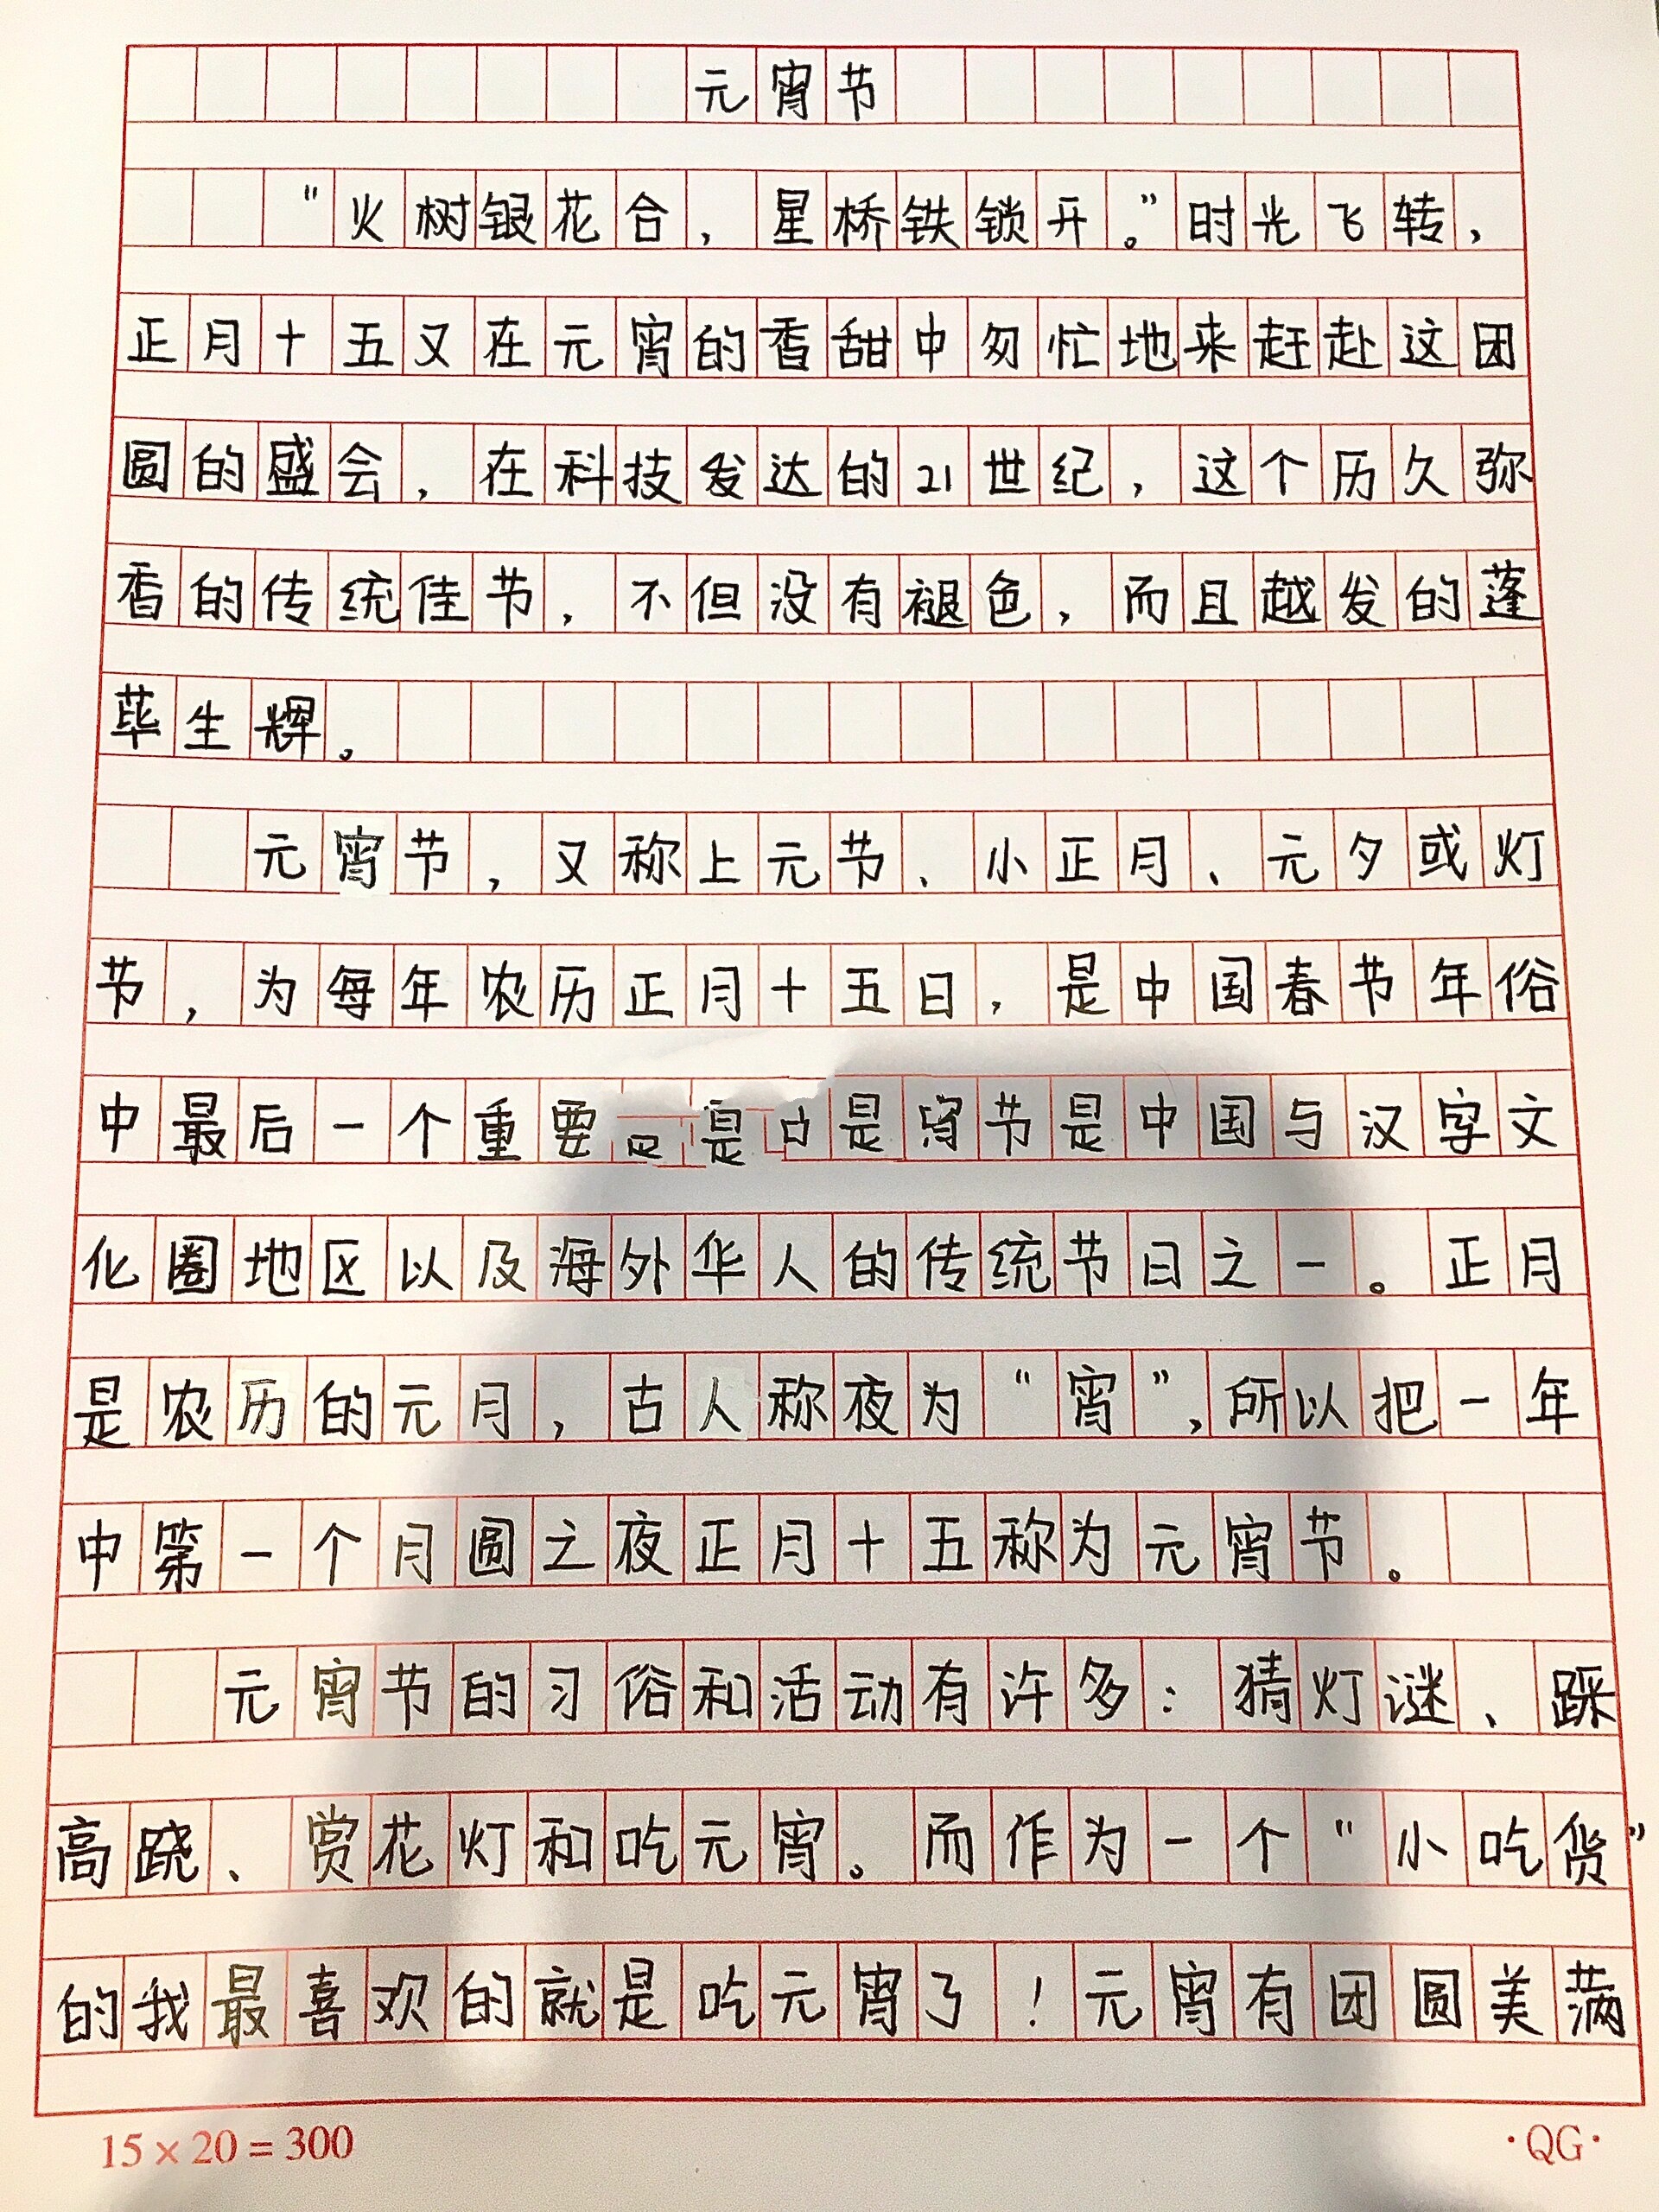 元宵节
“火树银花合，星桥铁锁开。”时光飞转，
正月十五又在元宵的香甜中匆忙地来赶赴这团
圆的盛会，在科技发达的21世纪，这个历久弥
香的传统佳节，不但没有褪色，而且越发的蓬
荜生辉。
元宵节，又称上元节、小正月、元夕或灯
节，为每年农历正月十五日，是中国春节年俗
中最后一个重要是是宵节是中国与汉字文
化圈地区以及海外华人的传统节日之一。正月
是农历的元月，古人称夜为“宵”，所以把一年
中第一个月圆之夜正月十五称为元宵节。
元宵节的习俗和活动有许多：猜灯谜、踩
高跷、赏花灯和吃元宵。而作为一个“小吃货”
的我最喜欢的就是吃元宵了！元宵有团圆美满
15×20=300
·QG·